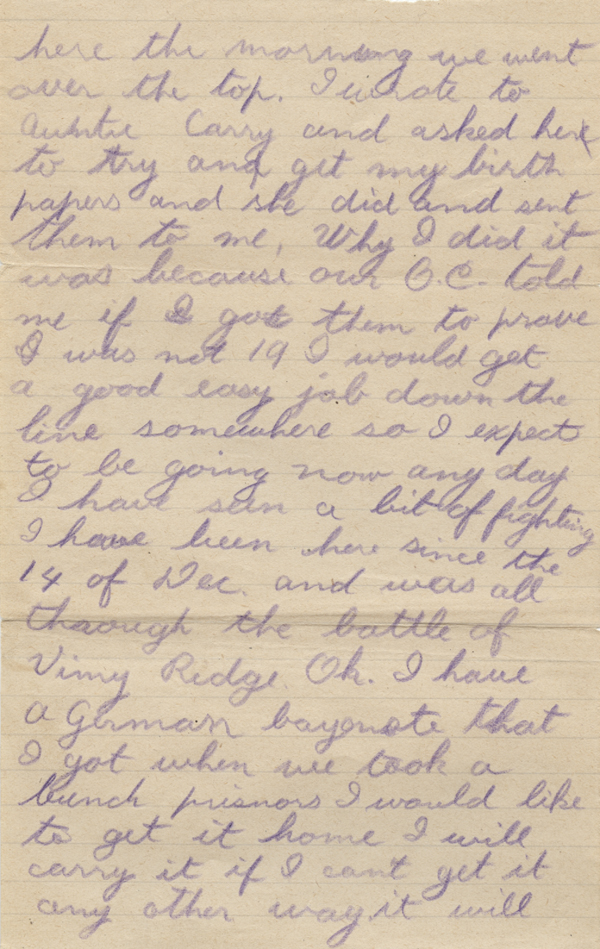 here the morning we went
over the top. I wrote to
Auntie Carry and asked her
to try and get my birth
papers and she did and sent
them to me, Why I did it
was because our O.C. told
me if I got them to prove
I was not 19 I would get
a good easy job down the
line somewhere so I expect
to be going now any day
I have seen a bit of fighting
I have been here since the
14 of Dec. and was all
through the battle of
Vimy Ridge. Oh. I have
a German bayenote that
I got when we took a
bunch prisnors I would like
to get it home I will
carry it if I cant get it
any other way. it will